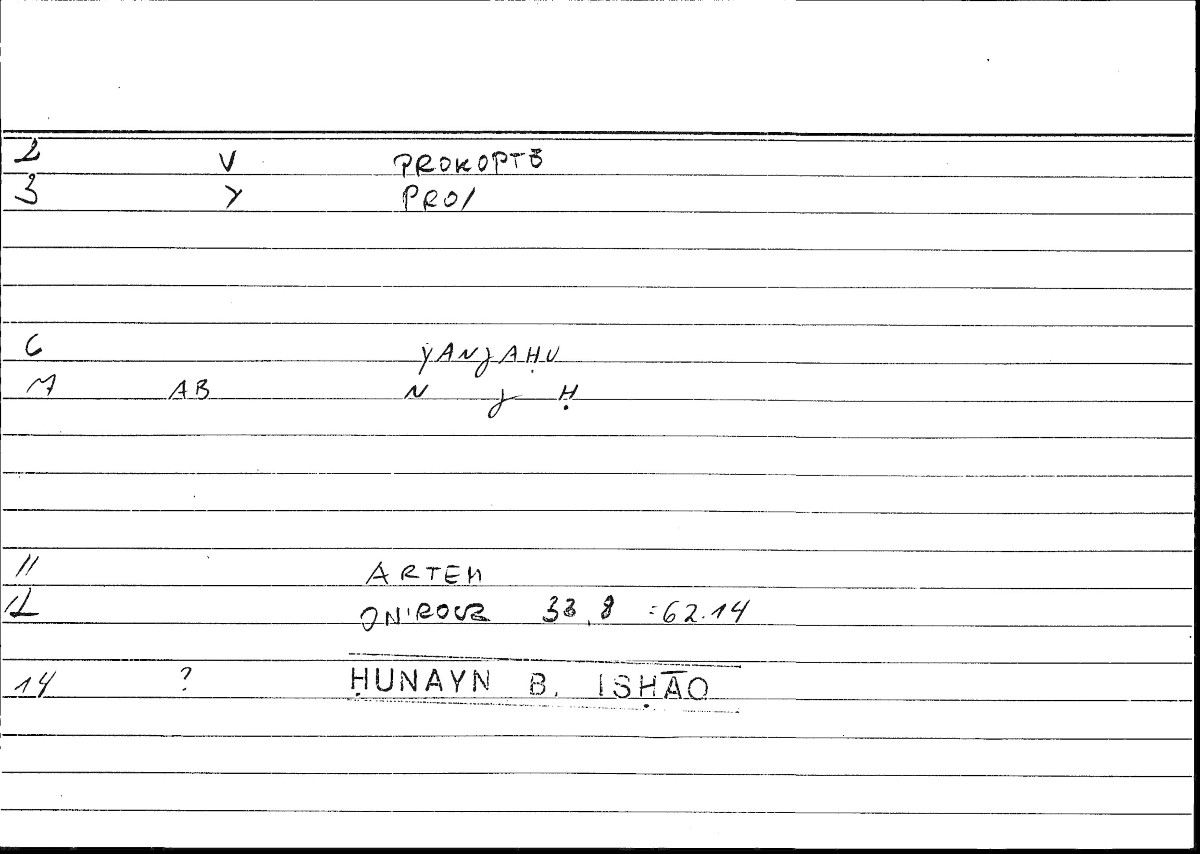 2 V PROKOPTŌ
3 Y PRO/
6 YANJAḤU
7 AB N J Ḥ
11 ARTEM
12 ONIROCR 33,8 =62.14
14 ? ḤUNAYN B. ISḤĀQ